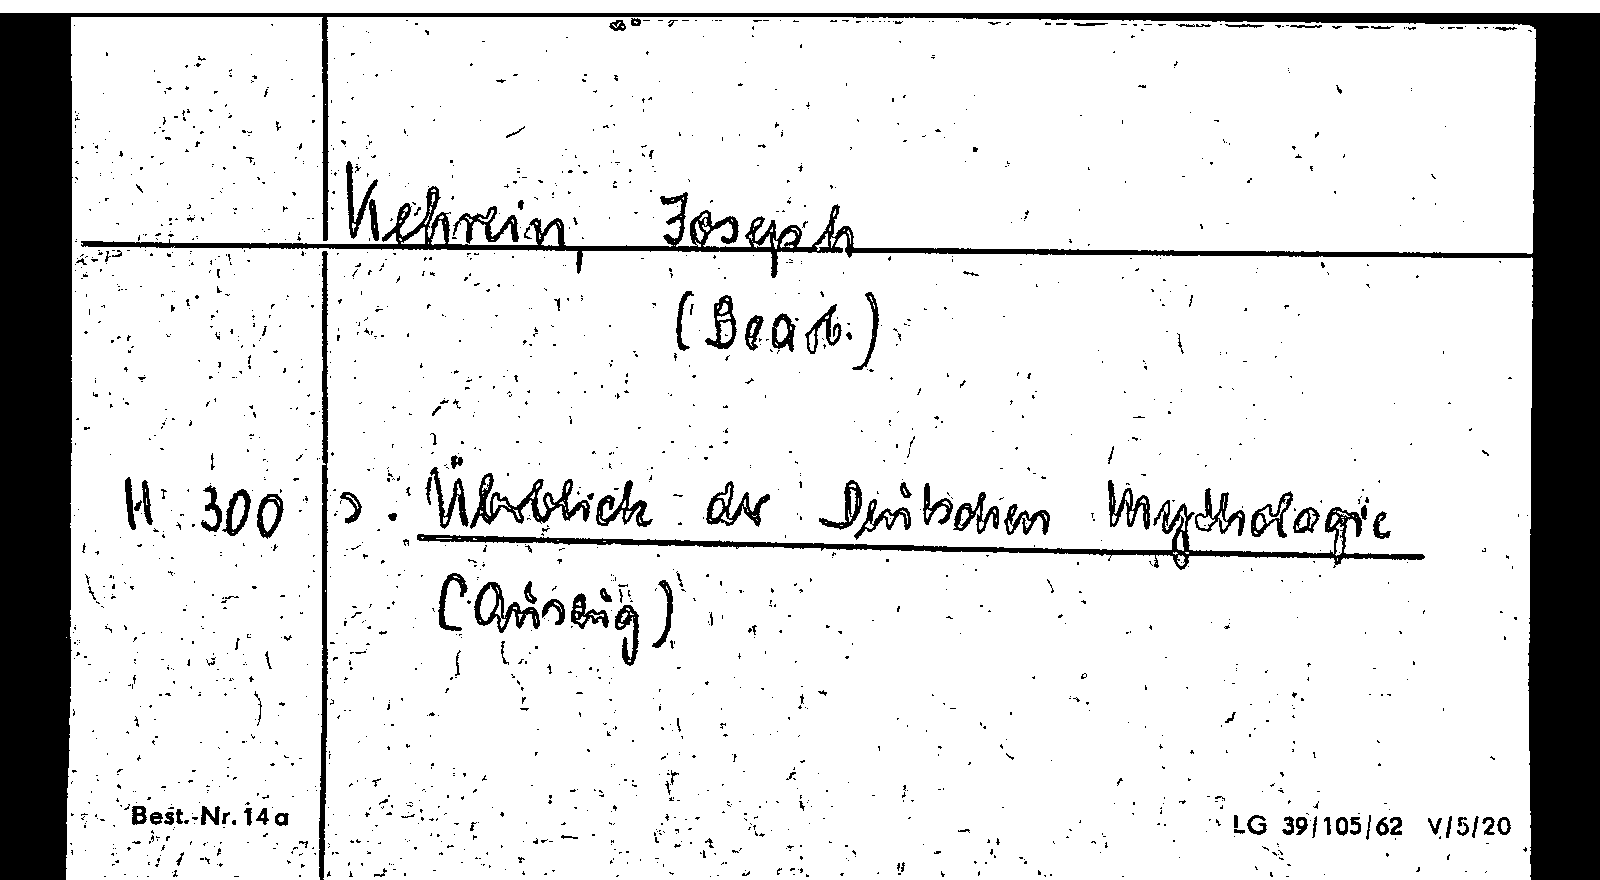 Kehrein, Joseph
(Bearb.)
H 300 s. Überblick der Deutschen Mythologie
(Auszug)
Best.-Nr. 14a
LG 39/105/62 V/5/20